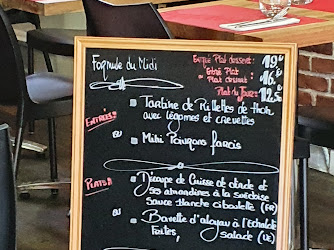 Formule du Midi
Entrée Plat dessert: 19.€
Entrée Plat
ou Plat dessert: 16.€
Plat du Jour: 12.5€
Entrées
Tartine de Rillettes de thon
avec légumes et crevettes
ou
Mini Poivrons farcis
Plats
Découpe de Cuisse de dinde et
ses amandines à la suédoise
Sauce blanche ciboulette (FR)
ou
Bavette d'aloyau à l'échalote
Frites, salade (UE)